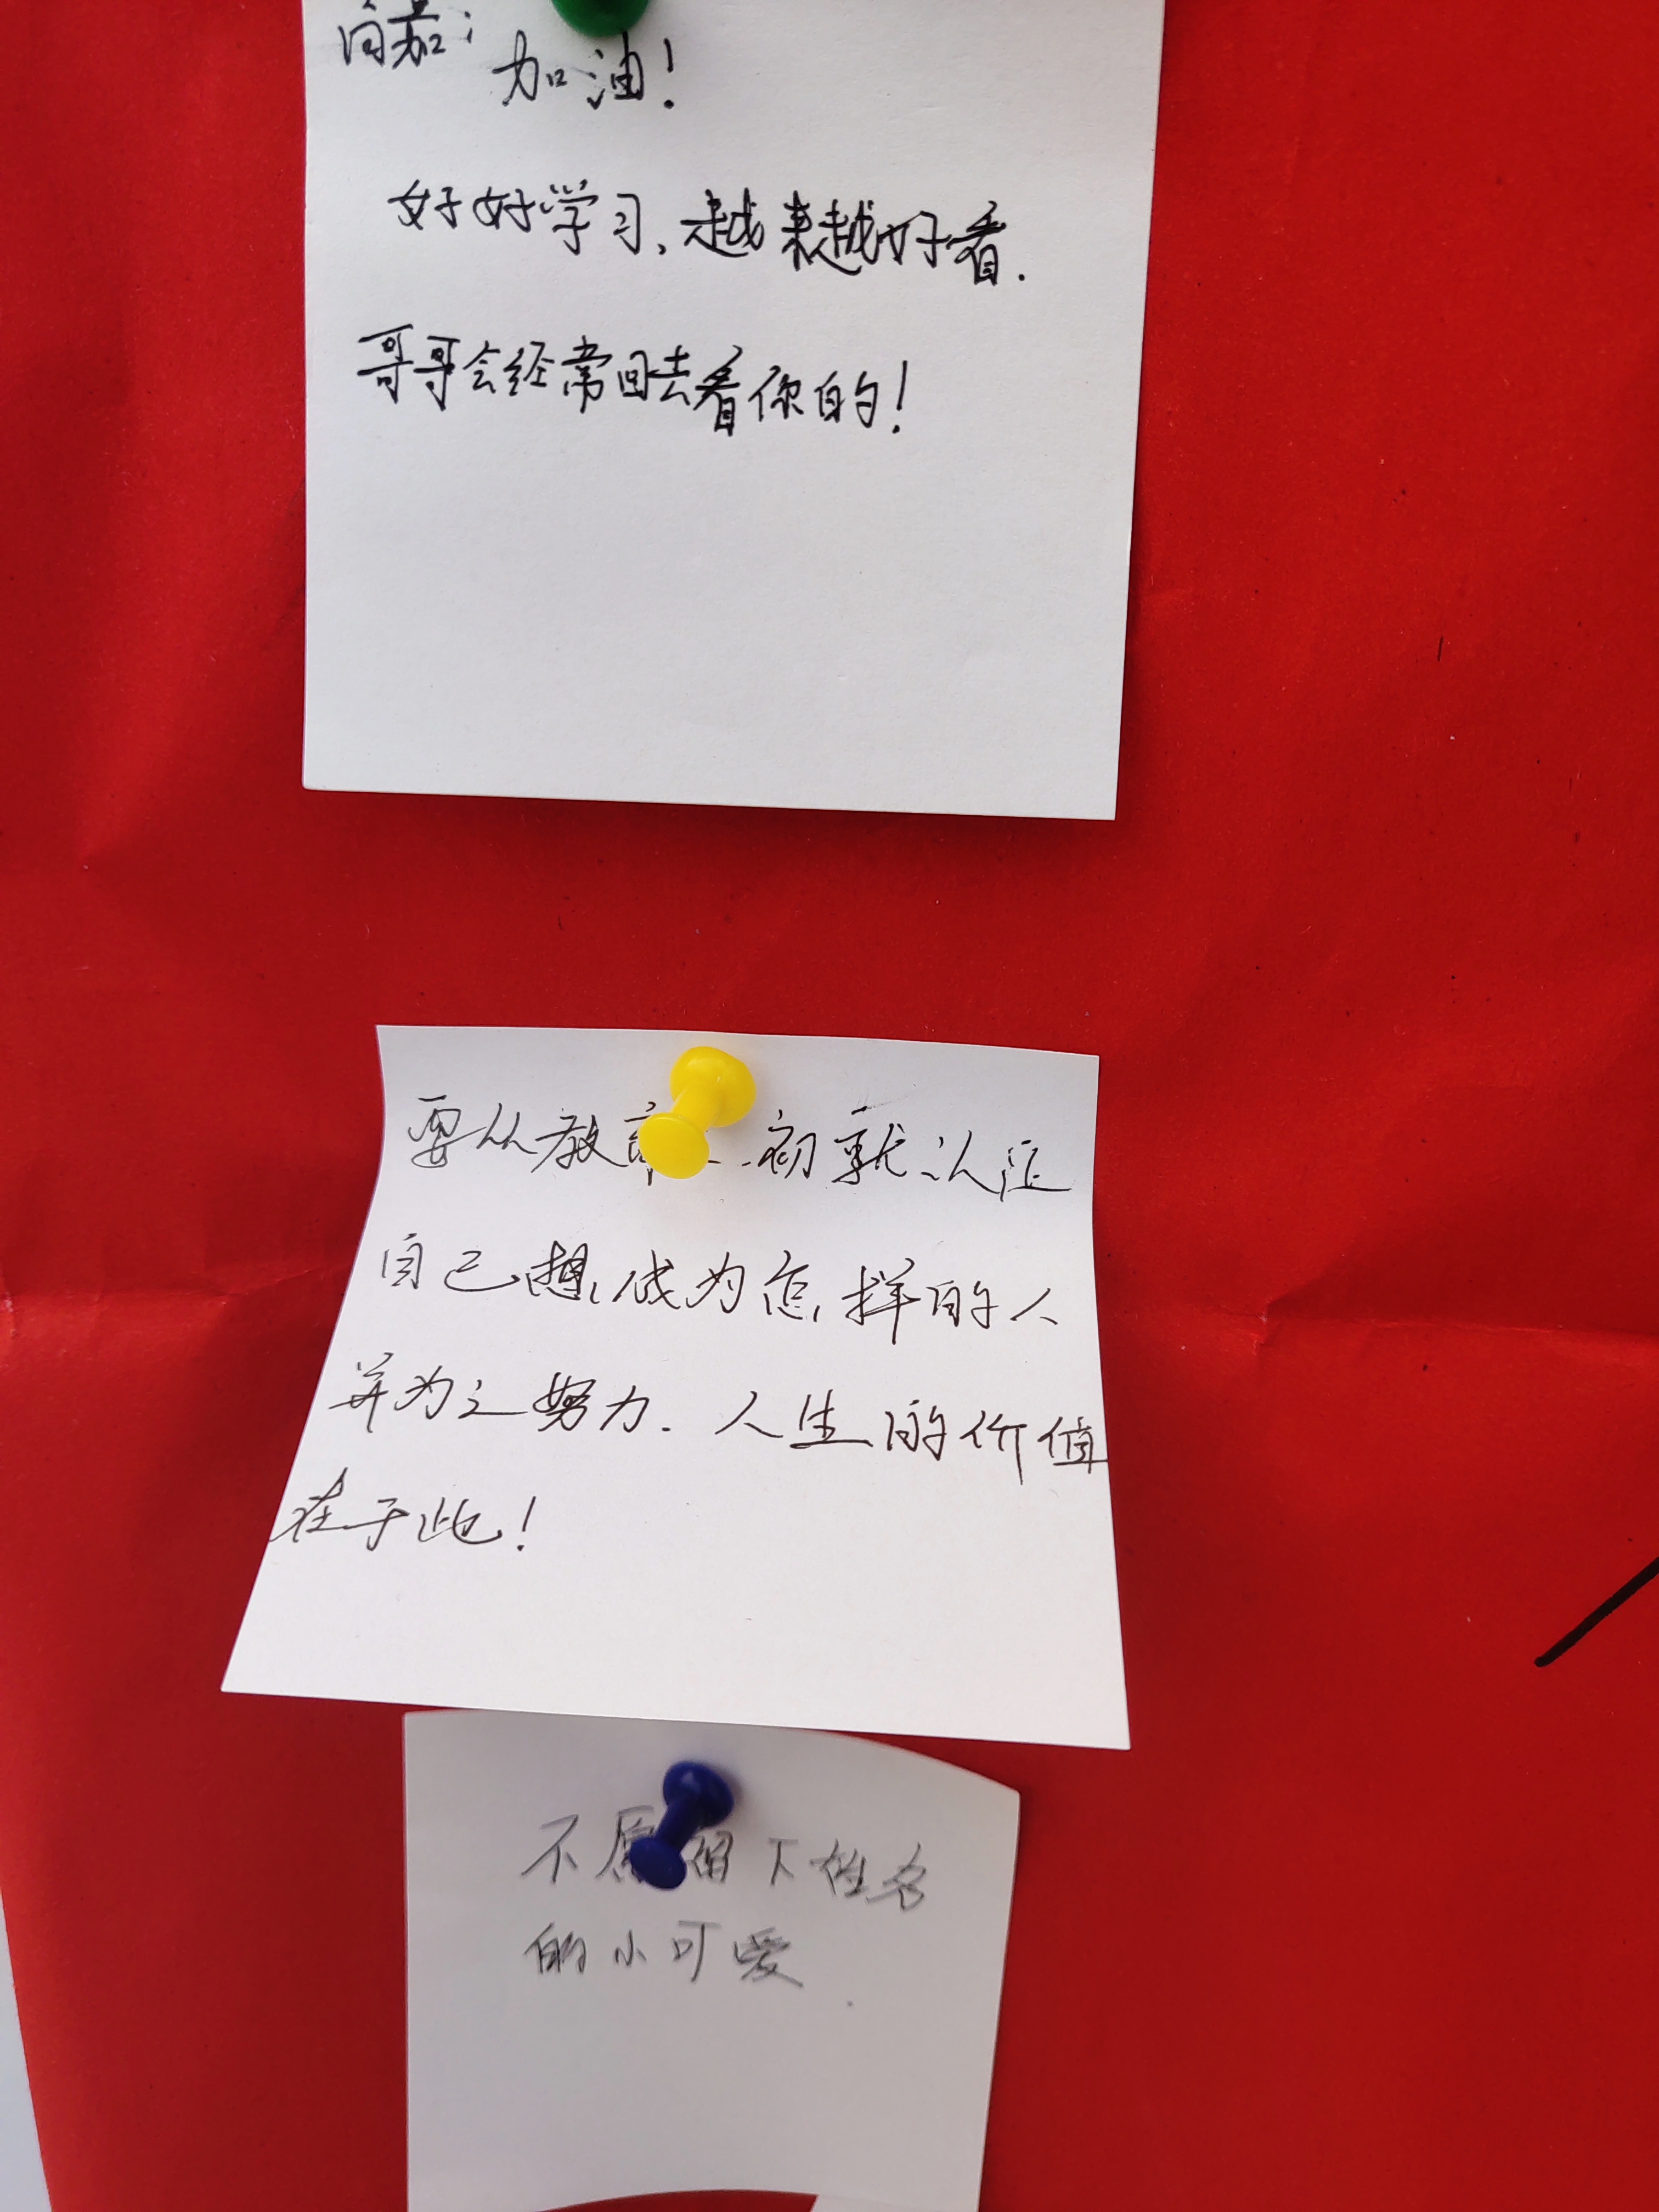 向嘉:
加油!
好好学习、越来越好看.
哥哥会经常回去看你的!
要从教育之初就认证
自己想成为怎样的人
并为之努力.人生的价值
在于此!
不愿留下姓名
的小可爱.